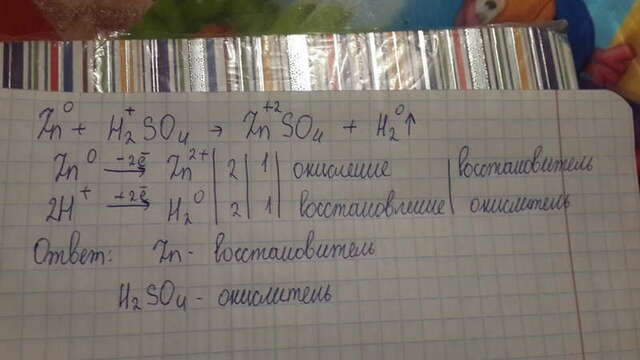 Zn⁰ + H₂⁺SO₄ → Zn⁺²SO₄ + H₂⁰↑
Zn⁰ –2ē→ Zn²⁺ | 2 | 1 | окисление | восстановитель
2H⁺ +2ē→ H₂⁰ | 2 | 1 | восстановление | окислитель
Ответ: Zn - восстановитель
H₂SO₄ - окислитель